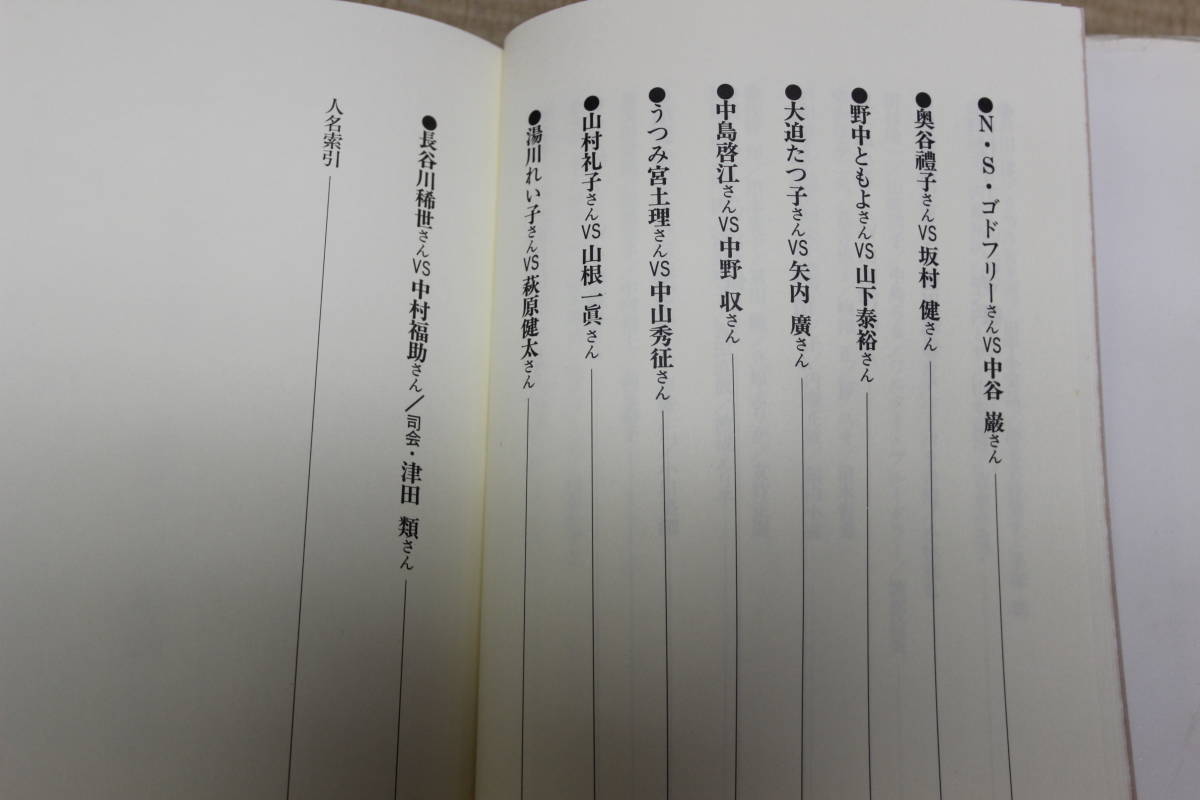 ●N・S・ゴドフリーさんVS中谷 巌さん
●奥谷禮子さんVS坂村 健さん
●野中ともよさんVS山下泰裕さん
●大迫たつ子さんVS矢内 廣さん
●中島啓江さんVS中野 収さん
●うつみ宮土理さんVS中山秀征さん
●山村礼子さんVS山根一眞さん
●湯川れい子さんVS萩原健太さん
●長谷川稀世さんVS中村福助さん/司会・津田 類さん
人名索引